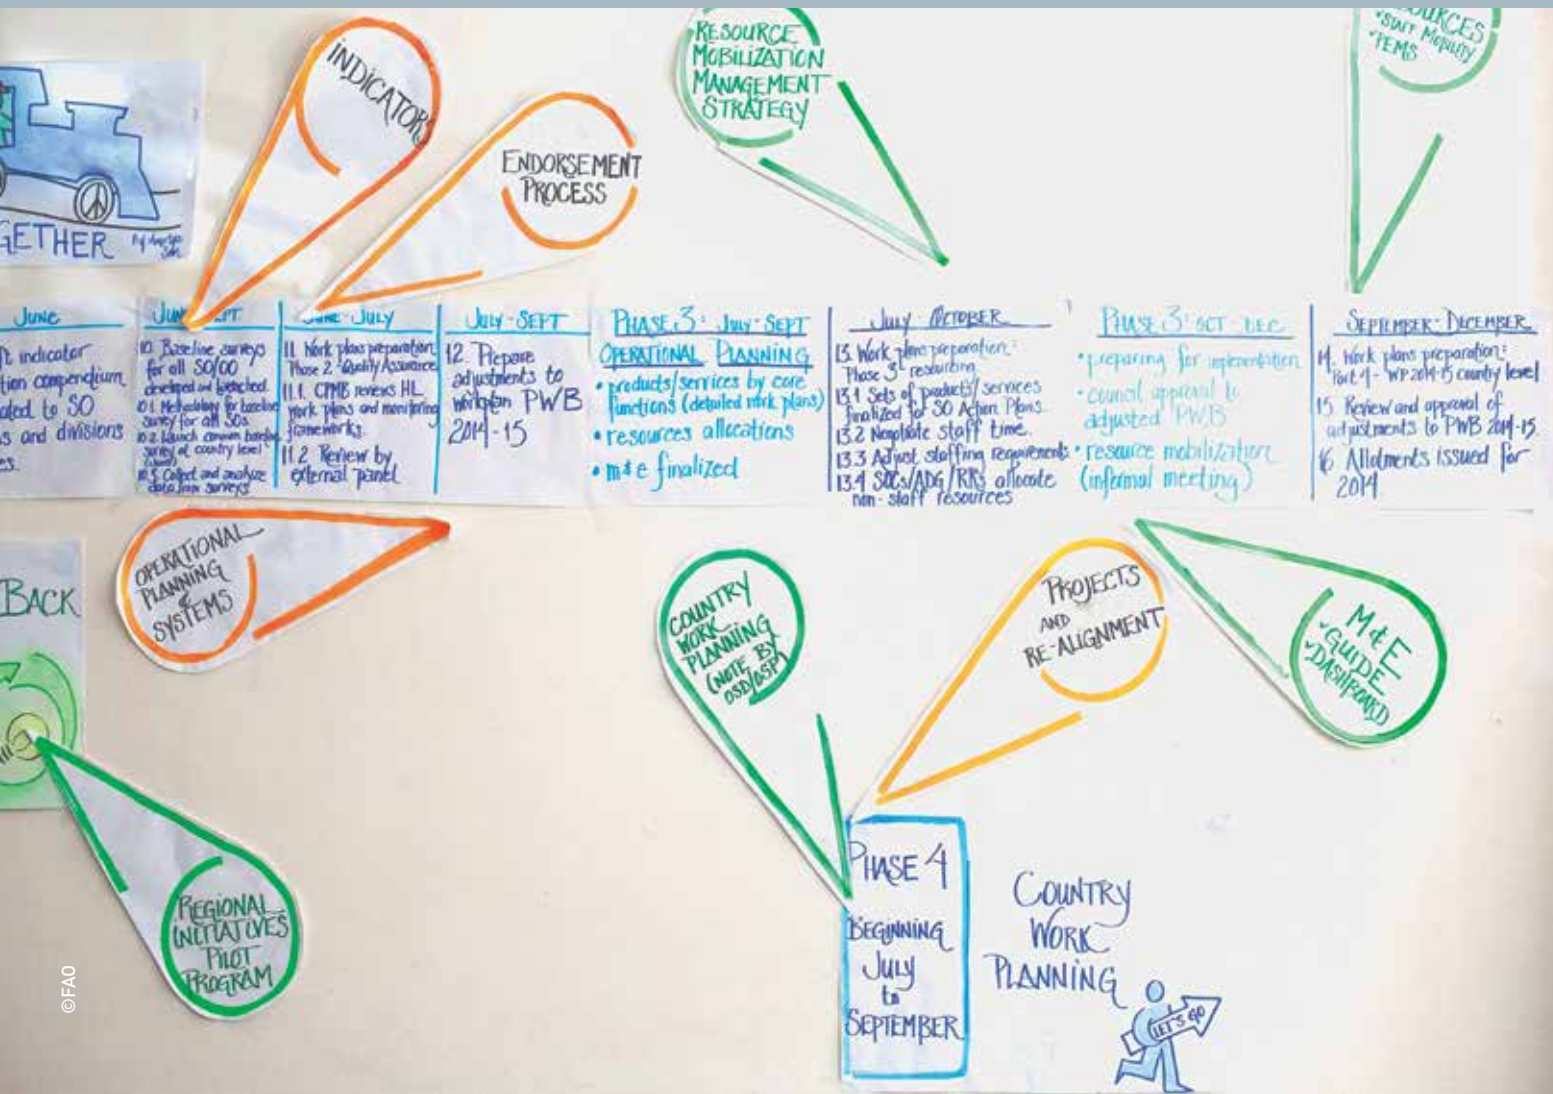 INDICATORS
ENDORSEMENT
PROCESS
RESOURCE
MOBILIZATION
MANAGEMENT
STRATEGY
STAFF MOBILITY
PEMS
GETHER
JUNE
indicator
tion compendium
to SO
s and divisions
JUNE
10. Baseline surveys
for all SO/OO
developed and
10.1 Methodology for baseline
survey for all SOs
10.2 Launch common baseline
survey at country level
Collect and analyze
data from surveys
JUNE-JULY
11. Work plans preparation
Phase 2 - Quality Assurance
11.1. CPMB reviews HL
work plans and monitoring
frameworks.
11.2 Review by
external panel
JULY-SEPT
12. Prepare
adjustments to
workplan PWB
2014-15
PHASE 3: JULY-SEPT
OPERATIONAL PLANNING
• products/services by core
functions (detailed work plans)
• resources allocations
• m&e finalized
JULY OCTOBER
13. Work plans preparation:
Phase 3 resourcing
13.1 Sets of products/services
finalized for SO Action Plans.
13.2 Negotiate staff time.
13.3 Adjust staffing requirements
13.4 SOCs/ADG/RRs allocate
non-staff resources
PHASE 3: OCT-DEC
• preparing for implementation
• council approval to
adjusted PWB
• resource mobilization
(informal meeting)
SEPTEMBER-DECEMBER
14. Work plans preparation:
Part 4 - WP 2014-15 country level
15 Review and approval of
adjustments to PWB 2014-15
16 Allotments issued for
2014
OPERATIONAL
PLANNING
&
SYSTEMS
BACK
REGIONAL
INITIATIVES
PILOT
PROGRAM
COUNTRY
WORK
PLANNING
(NOTE BY
OSD/OSP)
PROJECTS
AND
RE-ALIGNMENT
M&E
GUIDE
DASHBOARD
PHASE 4
BEGINNING
JULY
to
SEPTEMBER
COUNTRY
WORK
PLANNING
LET'S GO
©FAO